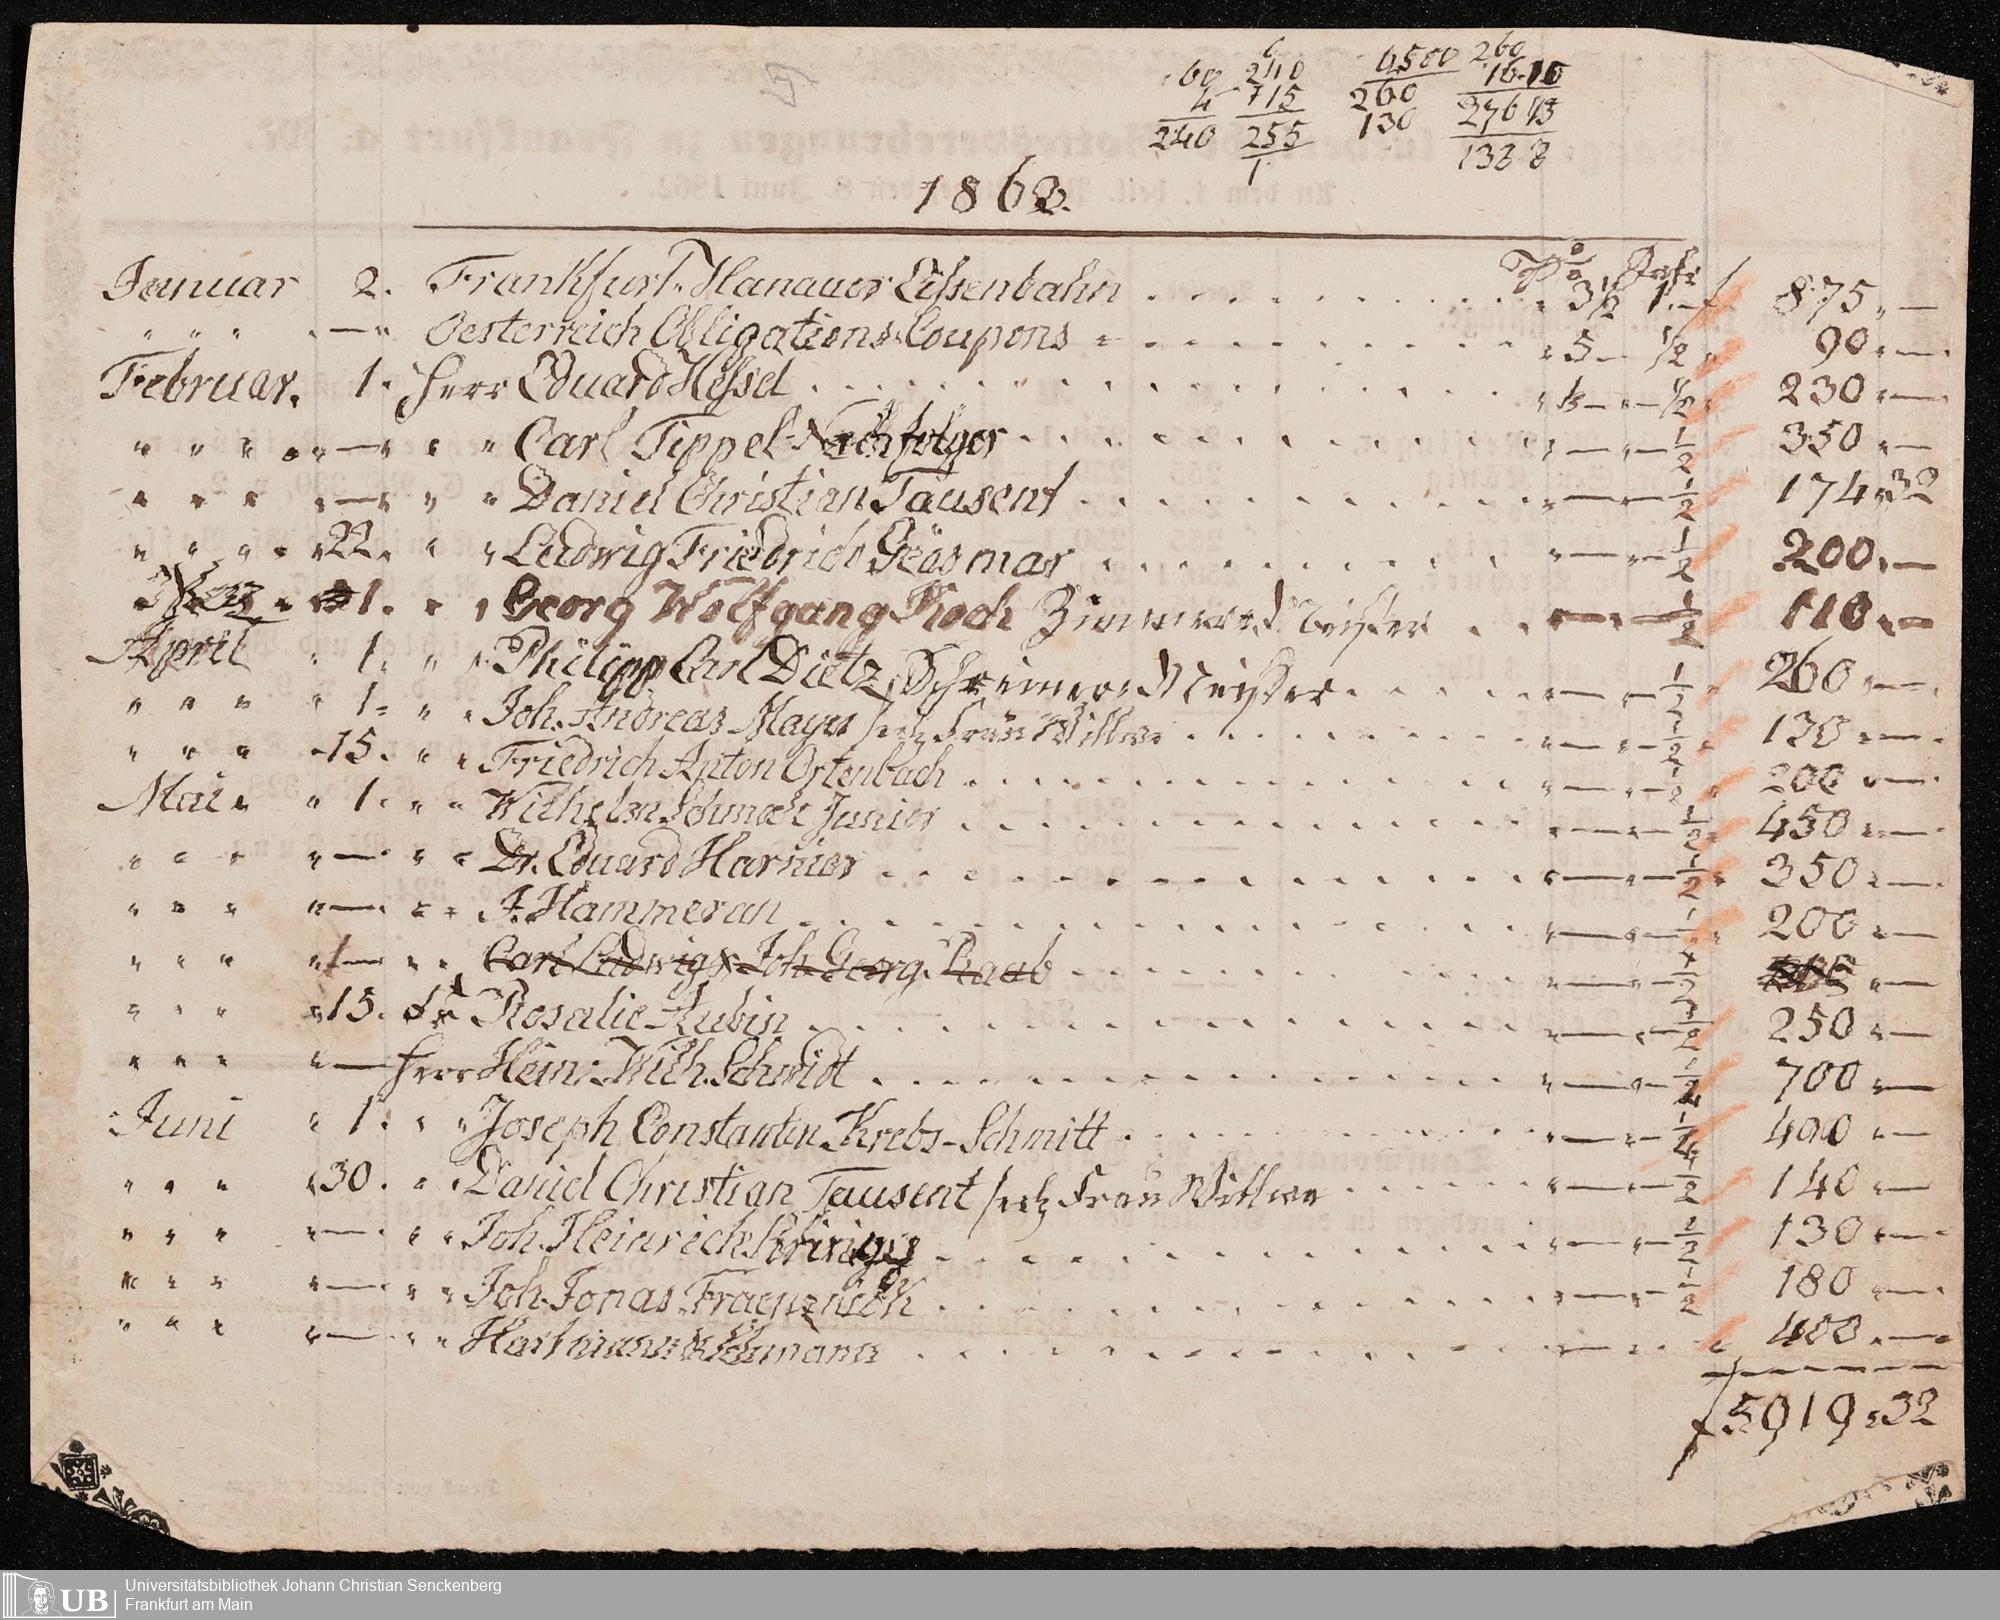 60 240 6500 260
4 715 260 16.15
240 255 130 276 15
1 138 8
1863.
Januar 2. Frankfurt-Hanauer Eissenbahn . . . . . . . . . . 3½ 1.— f 875 „ —
" " " " — " Oesterreich Obligations-Coupons . . . . . . . . . . " 5 — ½ " 90 „ —
Februar. 1. Herr Eduard Hessel . . . . . . . . . . " — " — ½ 230 „ —
" " " " — " " " Carl Tippel-Nachfolger . . . . . . . . . . " — " — ½ 350 „ —
" " " " — " " " Daniel Christian Tausent . . . . . . . . . . " — " — ½ 174 „ 32
" " " " 22. " " Ludwig Friedrich Geösmar . . . . . . . . . . " — " — ½ 200 „ —
" 1. " " Georg Wolfgang Koch Zimmer Meister . . " — " — ½ 110 „ —
April " 1. " " Philipp Carl Dietz, Schreiner Meister . . . . . " — " — ½ 260 „ —
" " " " 1. " " Joh. Andreas Mayer Frau Wittwe . . . . . . . . " — " — ½ 130 „ —
" " " " 15. " " Friedrich Anton Ortenbach . . . . . . . . . . " — " — ½ 200 „ —
Mai " " 1. " " Wilhelm Schmole Junior . . . . . . . . . . " — " — ½ 450 „ —
" " " " — " " Dr. Eduard Harnier . . . . . . . . . . " — " — ½ 350 „ —
" " " " — " " J. Hammeran . . . . . . . . . . " — " — 200 „ —
" " " " 1 — " " Carl Ludwig & Joh. Georg Raab . . . . . . . . . . " — " — ½ „ —
" " " " 15. Rosalie Rubin . . . . . . . . . . " — " — ½ 250 „ —
" " " " — Herr Hein: Wilh. Schmidt . . . . . . . . . . " — " — ½ 700 „ —
Juni " 1. " " Joseph Constantin Krebs-Schmitt . . . . . . . . . . " — " — 400 „ —
" " " " 30. " " Daniel Christian Tausent Frau Wittwe . . . . . " — " — ½ 140 „ —
" " " " — " " Joh. Heinrich . . . . . . . . . . " — " — ½ 130 „ —
" " " " — " " Joh. Jonas . . . . . . . . . . " — " — ½ 180 „ —
" " " " — " " Hartmann & . . . . . . . . . . " — " " 400 „ —
f 5919 „ 32
UB Universitätsbibliothek Johann Christian Senckenberg
Frankfurt am Main